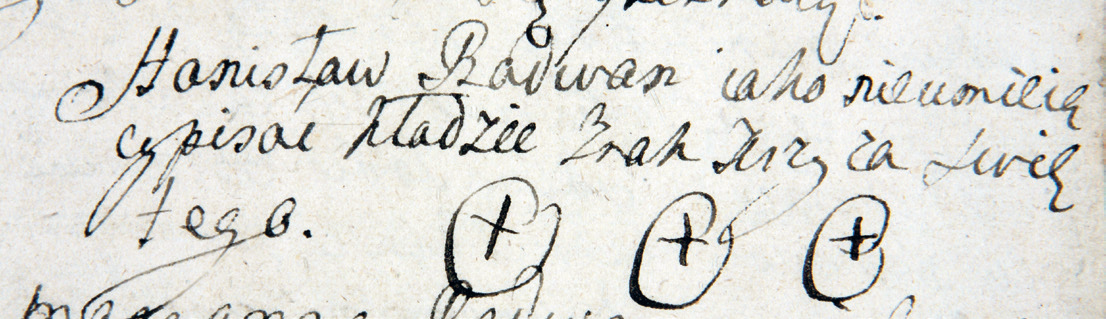 Stanisław Radwan iako nieumieią
cy pisac kładzie Znak Krzyża Swię
tego. + + +